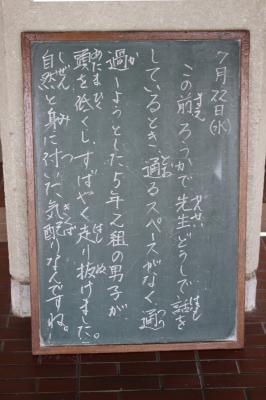 7月22日(水)
この前、ろうかで先生どうしで話を
しているとき、通るスペースがなく、通
過しようとした、5年2組の男子が
頭を低くし、すばやく走り抜けました。
自然と身に付いた気配りなんですね。